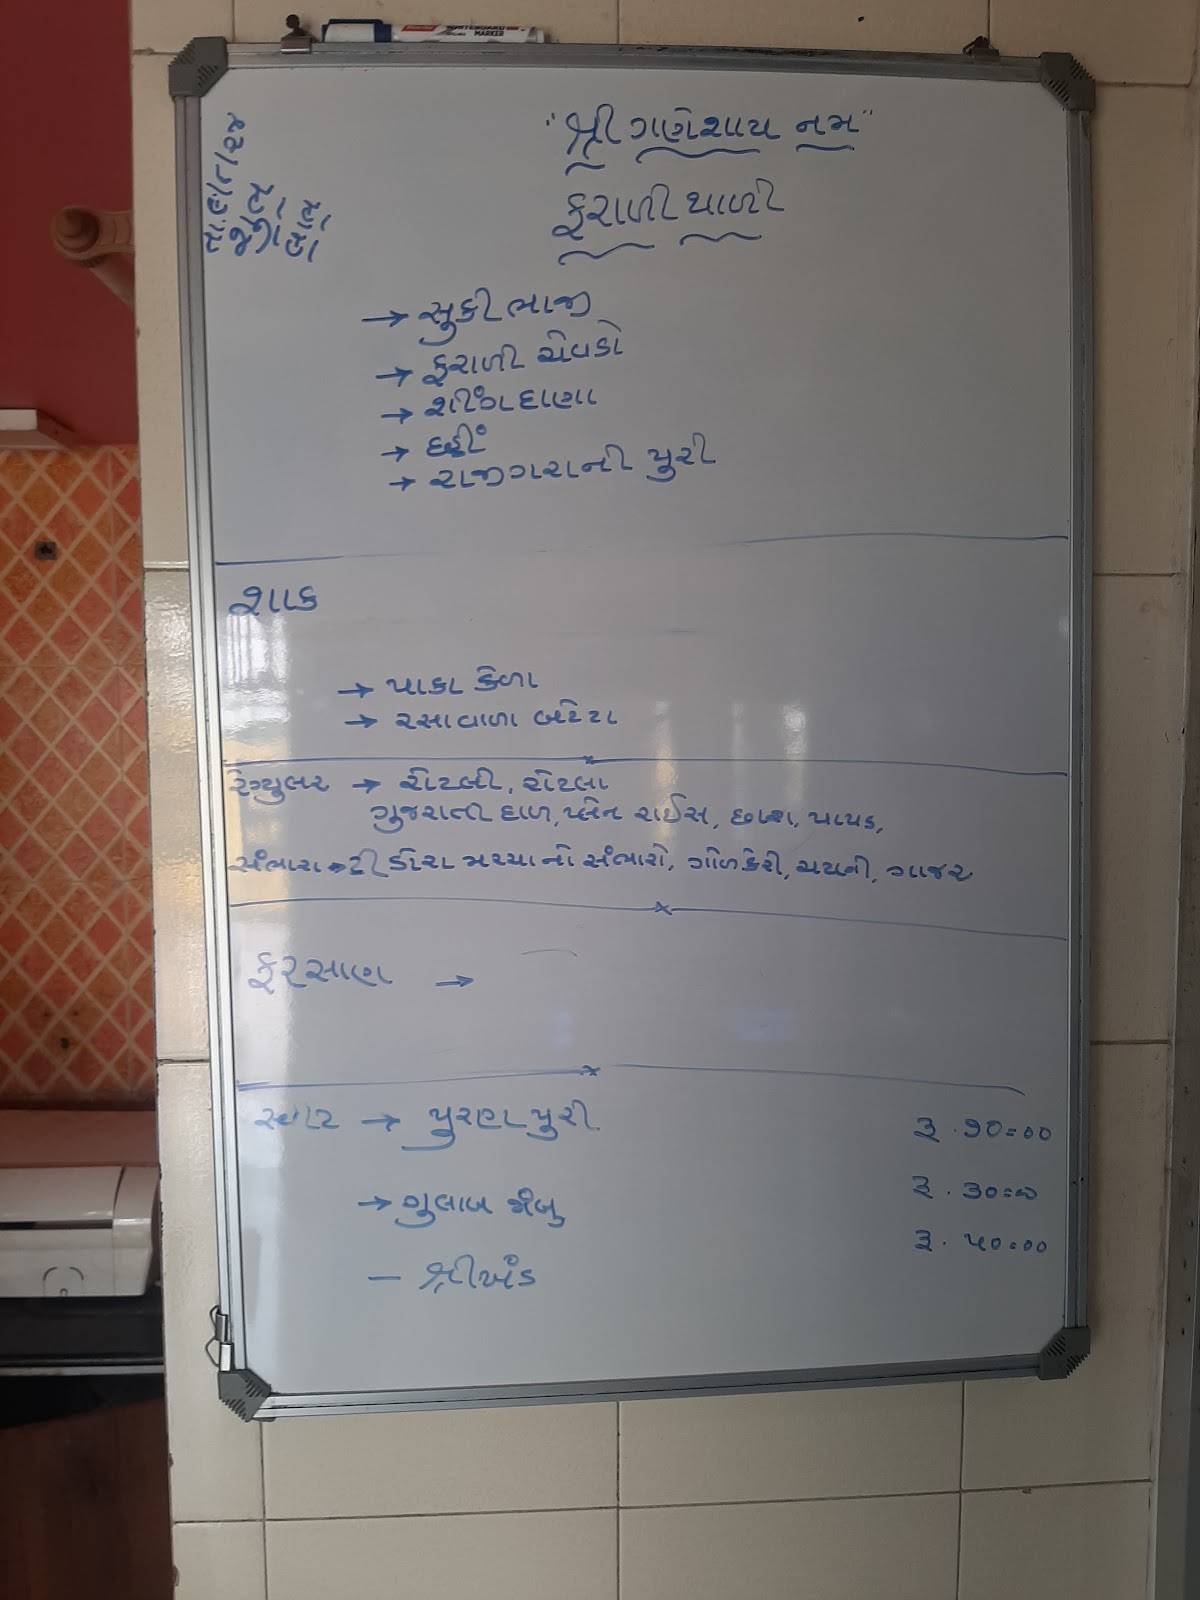 WHITEBOARD
MARKER
"શ્રી ગણેશાય નમ"
ફરાળી થાળી
→ સુકીભાજી
→ ફરાળી ચેવડો
→ શીંગદાણા
→ દહીં
→ રાજીગરાની પુરી
શાક
→ પાકા કેળા
→ રસાવાળા બટેટા
રેગ્યુલર → રોટલી, રોટલા
ગુજરાતી દાળ, પ્લેન રાઈસ, છાશ, પાપડ,
સંભારા → ટીડોરા મરચાનો સંભારો, ગોળકેરી, ચટની, ગાજર
ફરસાણ →
→ પુરણપુરી રૂ. ૭૦=૦૦
→ ગુલાબ જાંબુ રૂ. ૩૦=૦૦
— શ્રીખંડ રૂ. ૫૦=૦૦